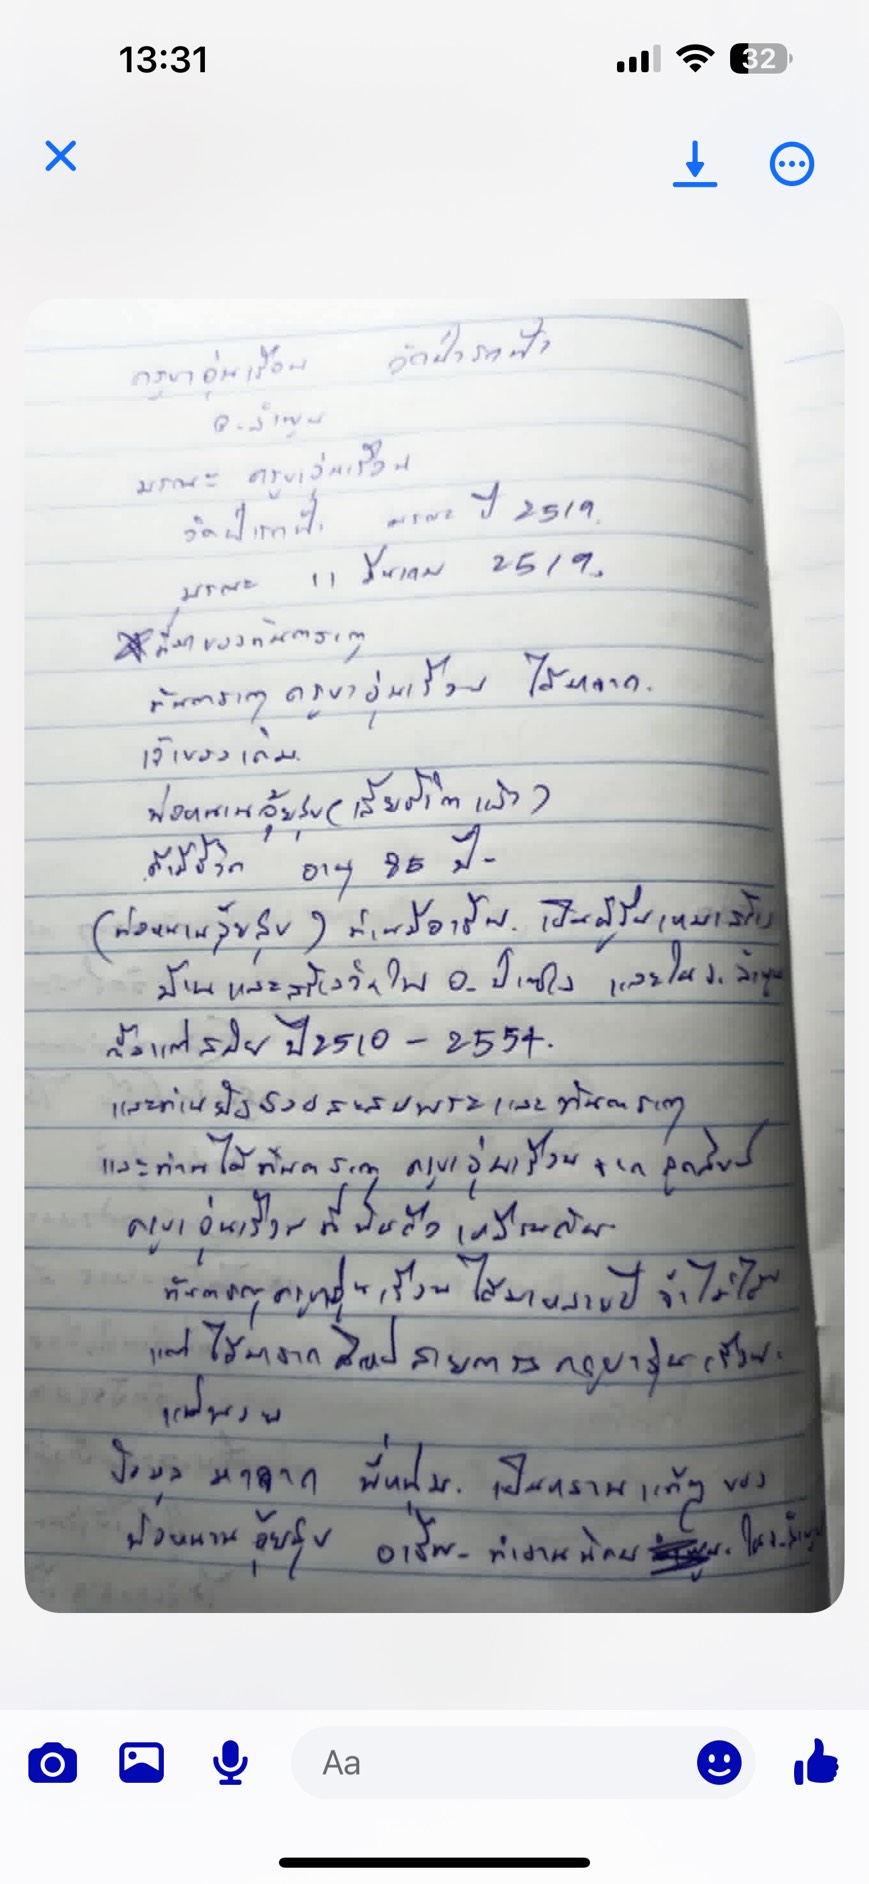 13:31
32
ครูบาอุ่นเรือน วัดป่ารกฟ้า
จ.ลำพูน
มรณะ ครูบาอุ่นเรือน
วัดป่ารกฟ้า มรณะ ปี 2519.
มรณะ 11 ธันเคม 2519.
ที่มาของทันตธาตุ
ทันตธาตุ ครูบาอุ่นเรือน ได้มาจาก.
เจ้าของเดิม.
พ่อหนานอุ้ยสุข (เสียชีวิตแล้ว)
ถ้ามีชีวิต อายุ 85 ปี-
(พ่อหนานอุ้ยสุข) ท่านมีอาชีพ. เป็นผู้รับเหมาสร้าง
บ้าน และสร้างวัดใน อ. ป่าซาง และใน จ. ลำพูน
ตั้งแต่สมัย ปี 2510 - 2554.
และท่านยังชอบสะสมพระและทันตธาตุ
และท่านได้ทันตธาตุ ครูบาอุ่นเรือน จาก ลูกศิษย์
ครูบาอุ่นเรือน ที่นับถือ เหมือนกัน.
ทันตธาตุครูบาอุ่นเรือน ได้มาหลายปี จำไม่ได้
แต่ ได้มาจาก ศิษย์ สายตรง ครูบาอุ่นเรือน.
แน่นอน
ข้อมูล มาจาก พี่หนุ่ม. เป็นหลานแท้ๆ ของ
พ่อหนาน อุ้ยสุข อาชีพ- ทำงานนิคม ใน จ.ลำพูน
Aa